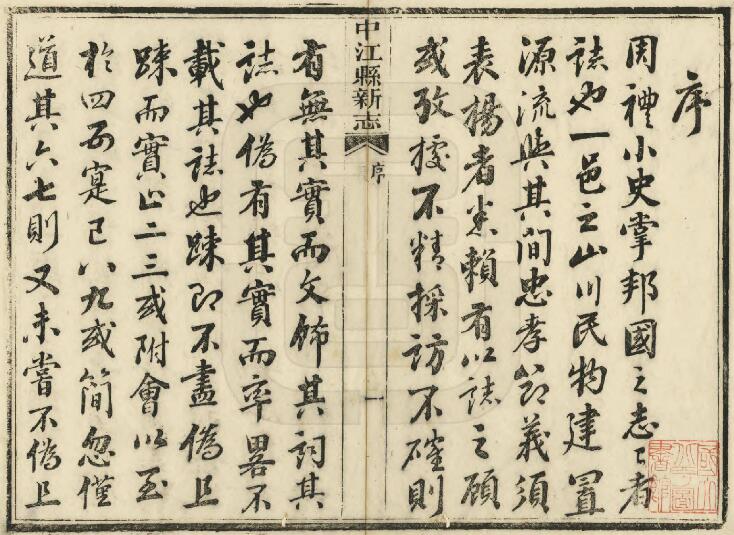 序
周禮小史掌邦國之志〻者
誌也一邑之山川民物建置
源流與其間忠孝節義須
表楊者悉賴有以誌之顧
或攷據不精採訪不確則
中江縣新志
序
一
有無其實而文飾其詞其
誌也偽有其實而率畧不
載其誌也踈即不盡偽且
踈而實止二三或附會以至
於四五寔已八九或簡忽僅
道其六七則又未嘗不偽且